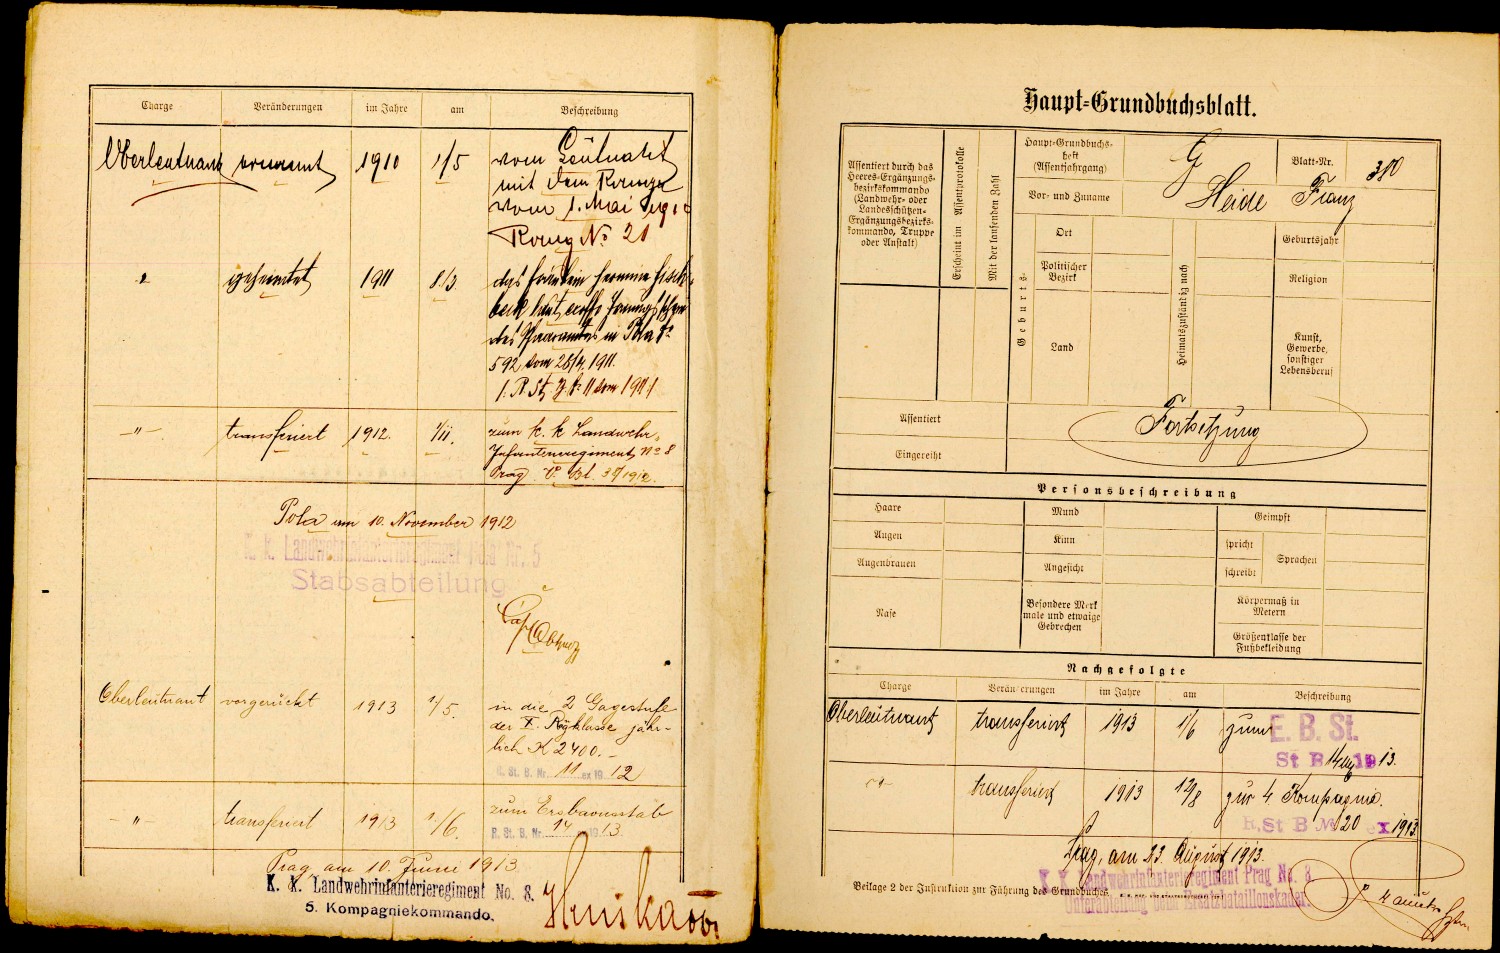 Charge Veränderungen im Jahre am Beschreibung
Oberleutnant ernannt 1910 1/5 vom Leutnant
mit dem Range
vom 1. Mai
Rang No 21
geheiratet 1911 8/3. das Fräulein Hermine
beck laut
des Pfarramtes in Pola
592 vom 28/4. 1911.
transferiert 1912. 1/11. zum k. k. Landwehr-
Infanterieregiment No 8
Prag V. Bl. 37/1912.
Pola am 10. November 1912
K. K. Landwehrinfanterieregiment Pola Nr. 5
Stabsabteilung
Oberleutnant vorgerückt 1913 1/5. in die 2 Gagestufe
der X. Rgklasse jähr-
lich K 2400.-
R. St. B. Nr. 11 ex 1912
-"- transferiert 1913 1/6. zum Ersbaonsstab
R. St. B. Nr. 14 ex 1913.
Prag, am 10. Juni 1913
K. K. Landwehrinfanterieregiment No. 8.
5. Kompagniekommando.
Haupt=Grundbuchsblatt.
Assentiert durch das
Heeres-Ergänzungs-
bezirkskommando
(Landwehr- oder
Landesschützen-
Ergänzungsbezirks-
kommando, Truppe
oder Anstalt)
Erscheint im Assentprotokolle
Mit der laufenden Zahl
Haupt-Grundbuchs-
heft
(Assentjahrgang)
G
Blatt-Nr.
Vor- und Zuname
Heide Franz
Geburts-
Ort
Politischer
Bezirk
Land
Heimatszuständig nach
Geburtsjahr
Religion
Kunst,
Gewerbe,
sonstiger
Lebensberuf
Assentiert
Eingereiht
Fortsetzung
Personsbeschreibung
Haare Mund Geimpft
Augen Kinn spricht Sprachen
Augenbrauen Angesicht schreibt
Nase
Besondere Merk
male und etwaige
Gebrechen
Körpermaß in
Metern
Größenklasse der
Fußbekleidung
Nachgefolgte
Charge Veränderungen im Jahre am Beschreibung
Oberleutnant transferiert 1913 1/6 zum E. B. St.
St B 14 ex 1913.
transferiert 1913 12/8 zur 4. Kompagnie.
R. St B No 20 ex 1913.
Prag, am 23. August 1913.
K. K. Landwehrinfanterieregiment Prag No. 8
Unterabteilung beim Ersatzbataillonskader.
Beilage 2 der Instruktion zur Führung des Grundbuches.